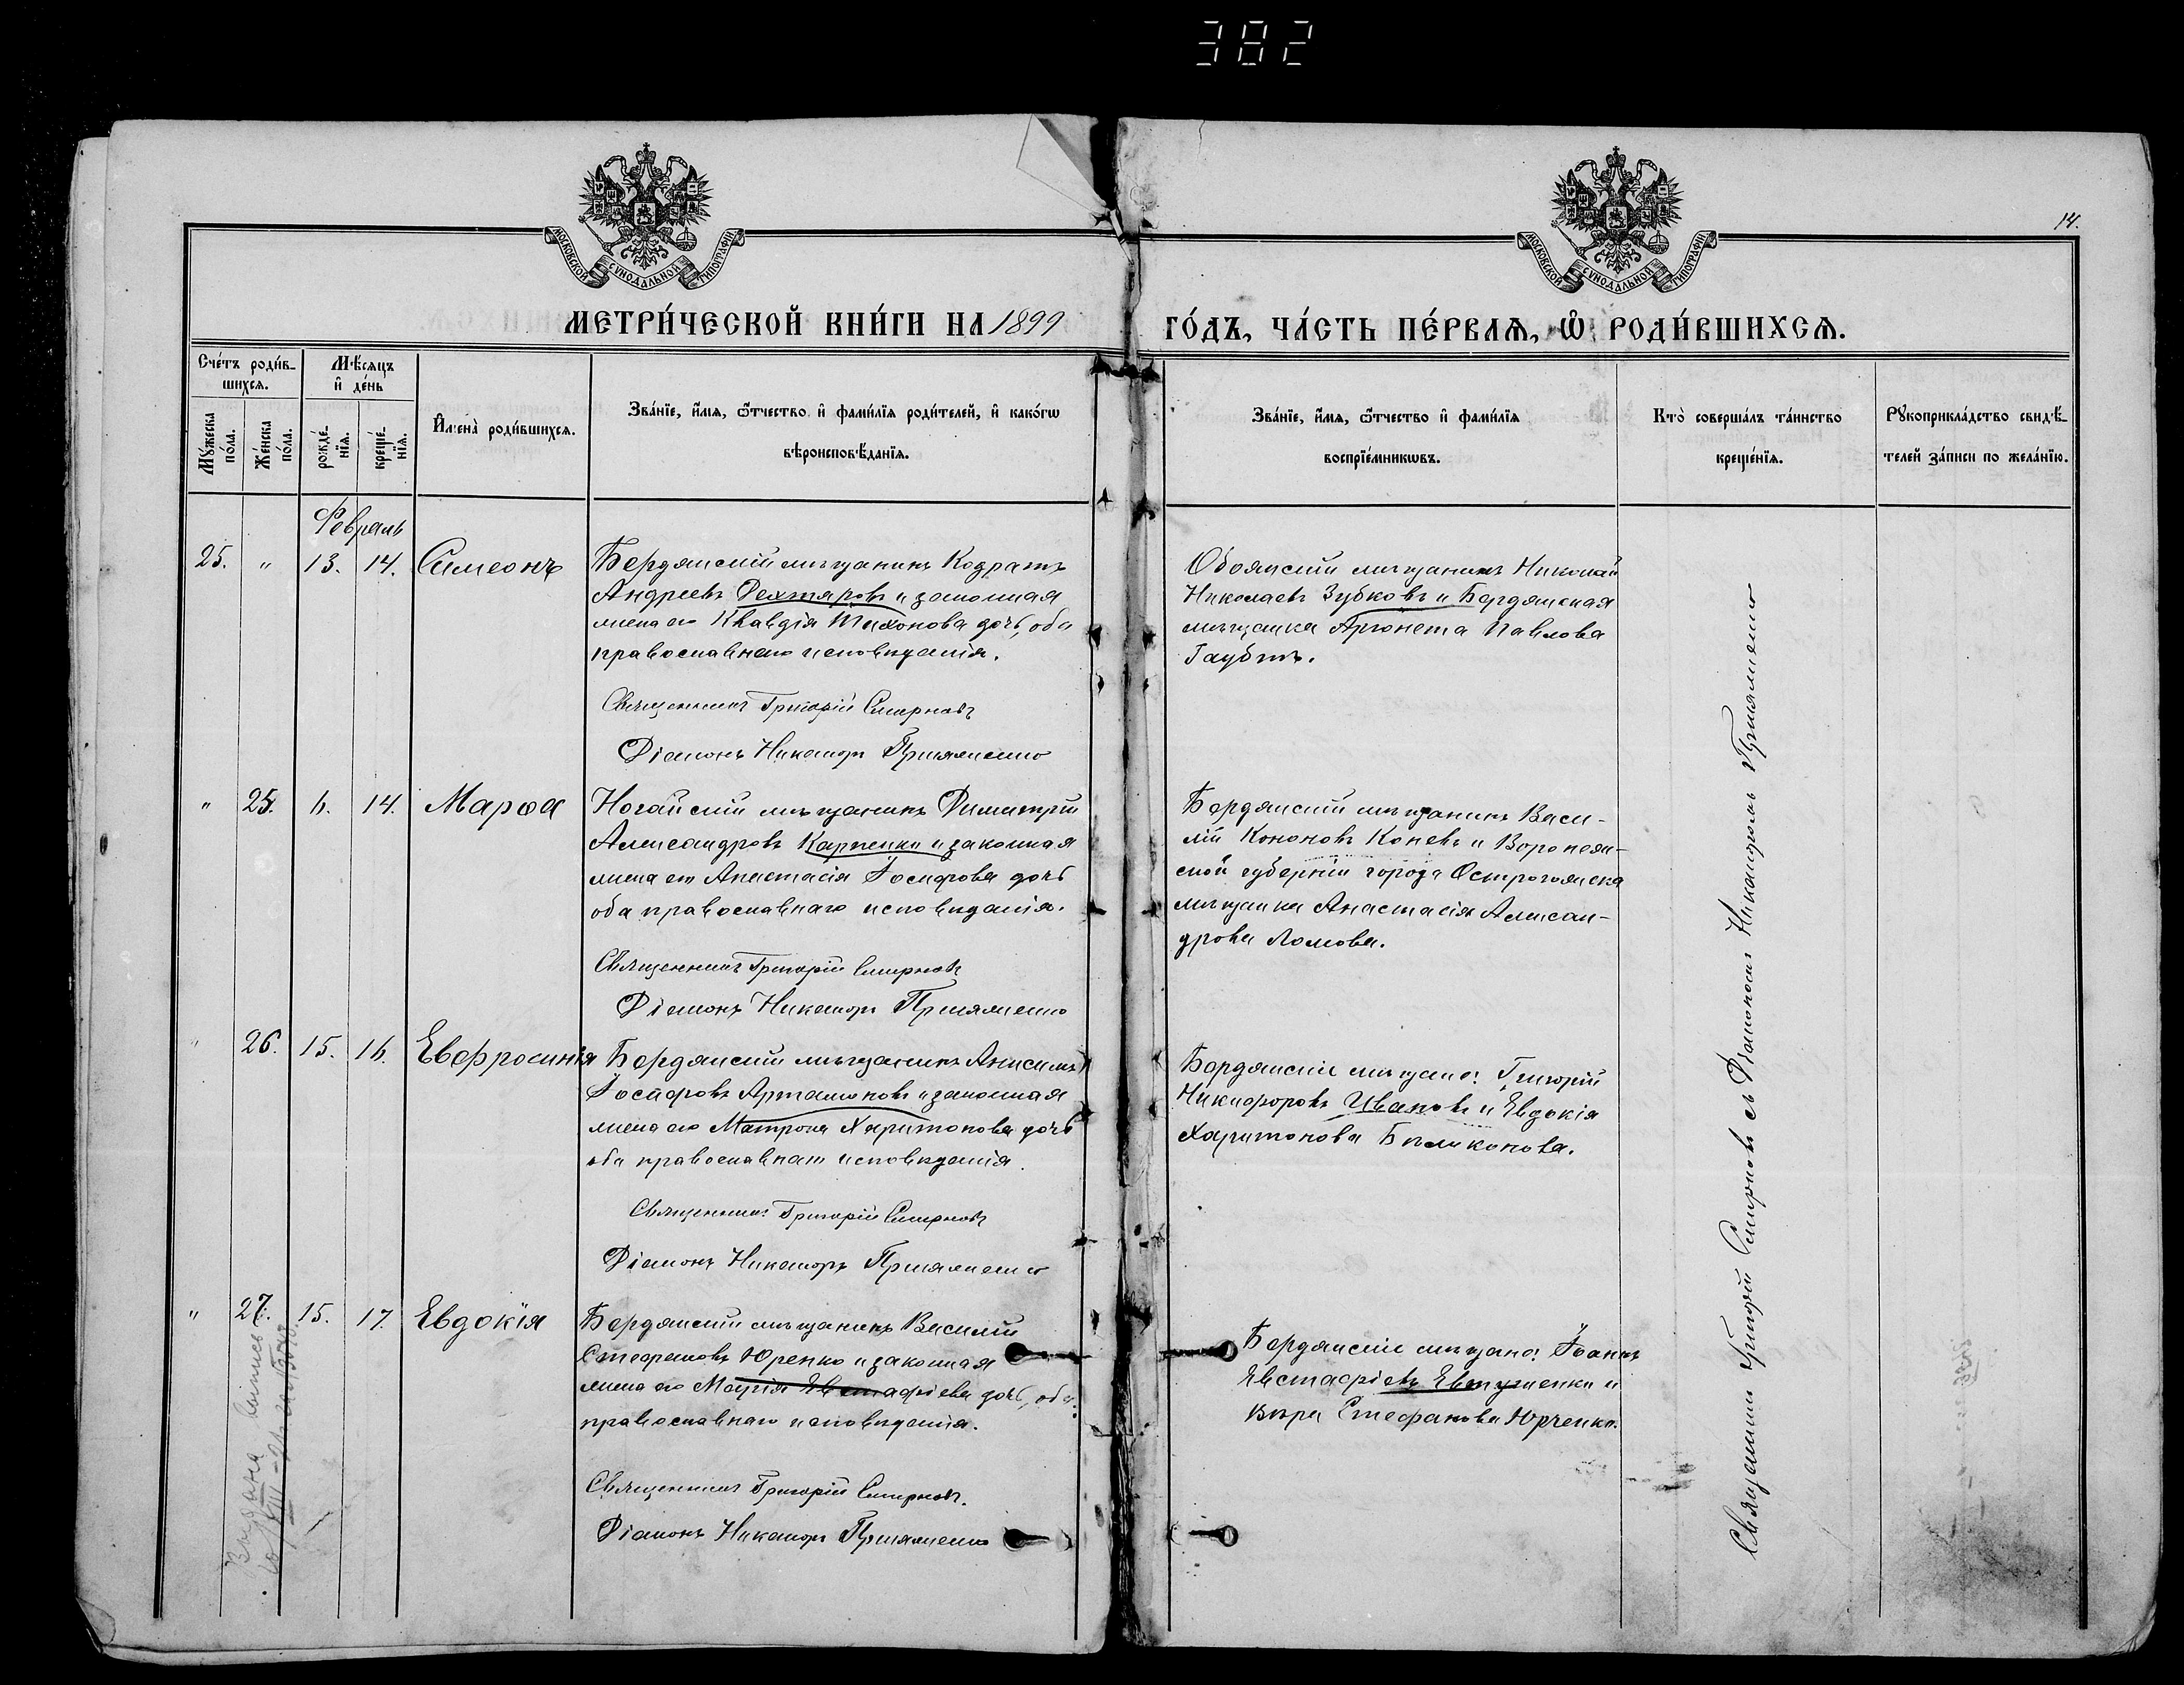 382
МОСКОВСКОЙ СѴНОДАЛЬНОЙ ТИПОГРАФІИ
МОСКОВСКОЙ СѴНОДАЛЬНОЙ ТИПОГРАФІИ
14.
МЕТРИ́ЧЕСКОЙ КНИ́ГИ НА 1899
ГО́ДЪ, ЧА́СТЬ ПЕ́РВАѦ, Ѡ҆ РОДИ́ВШИХСѦ.
Сче́тъ роди́в-
шихсѧ.
Мѣ́сѧцъ
и҆ де́нь
Мꙋ́жеска
по́ла.
Же́нска
по́ла.
рожде́-
нїѧ.
креще́-
нїѧ.
И҆мена̀ роди́вшихсѧ.
Зва́нїе, и҆́мѧ, ѻ҆́тчество и҆ фами́лїѧ роди́телей, и҆ како́гѡ
вѣроисповѣ́данїѧ.
Зва́нїе, и҆́мѧ, ѻ҆́тчество и҆ фами́лїѧ
воспрїе́мникѡвъ.
Кто̀ соверша́лъ та́инство
креще́нїѧ.
Рꙋкоприкла́дство свидѣ́-
телей за́писи по жела́нїю.
Февраль
25. " 13. 14. Симеонъ
Бердянскій мѣщанинъ Кодратъ
Андреевъ Дехтяровъ и законная
жена его Клавдія Тихонова дочь, оба
православнаго исповѣданія.
Священникъ Григорій Смирновъ
Діаконъ Никаноръ Пришляменко
Обоянскій мѣщанинъ Николай
Николаевъ Зубковъ и Бердянская
мѣщанка Павлова
" 25. 6. 14. Марѳа
Ногайскій мѣщанинъ Димитрій
Александровъ Карпенко и законная
жена его Анастасія Іосифова дочь
оба православнаго исповѣданія.
Священникъ Григорій Смирновъ
Діаконъ Никаноръ
Бердянскій мѣщанинъ Васи-
лій Кононовъ Коневъ и Воронеж-
ской губерніи города Острогожска
мѣщанка Анастасія Алексан-
дрова Ломова.
" 26. 15. 16. Евфросинія
Бердянскій мѣщанинъ Анисимъ
Іосифовъ Артамоновъ и законная
жена его Матрона Харитонова дочь
оба православнаго исповѣданія.
Священникъ Григорій Смирновъ
Діаконъ Никаноръ
Бердянскіе мѣщане: Григорій
Никифоровъ Ивановъ и Евдокія
Харитонова
" 27. 15. 17. Евдокія
Бердянскій мѣщанинъ Василій
Стефановъ Юренко и законная
жена его Марія Евстафіева дочь, оба
православнаго исповѣданія.
Священникъ Григорій Смирновъ.
Діаконъ Никаноръ
Бердянскіе мѣщане: Іоаннъ
Евстафіевъ Евтушенко и
Вѣра Стефанова Юрченко.
Священникъ Григорій Смирновъ съ Діакономъ
Выдана выпись